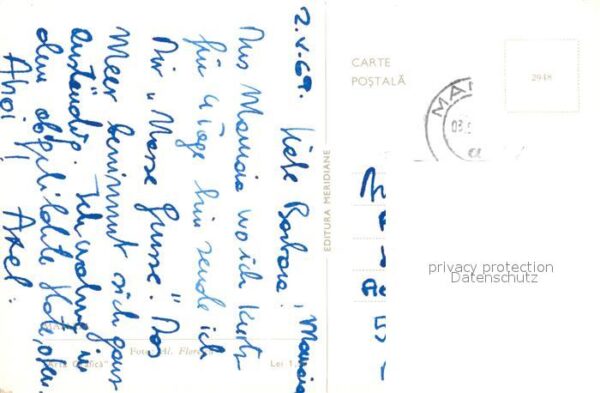 2.V.69.
Mamaia
Liebe Barbara!
Aus Mamaia wo ich kurz
für 4 Tage bin sende ich
Dir "Nasse Grüsse". Das
Meer benimmt sich ganz
anständig. Ich wohne in
dem abgebildeten Hotel, oben.
Ahoi! Axel.
Foto: Al. Florescu
"Arta Grafică"
Lei 1.
EDITURA MERIDIANE
CARTE
POȘTALĂ
2948
MA
03.
privacy protection
Datenschutz